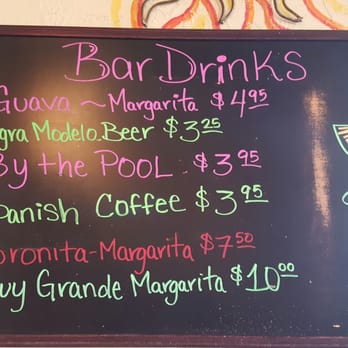 Bar Drinks
Guava ~ Margarita $4.95
gra Modelo Beer $3.25
By the Pool $3.95
panish Coffee $3.95
oronita-Margarita $7.50
uy Grande Margarita $10.00